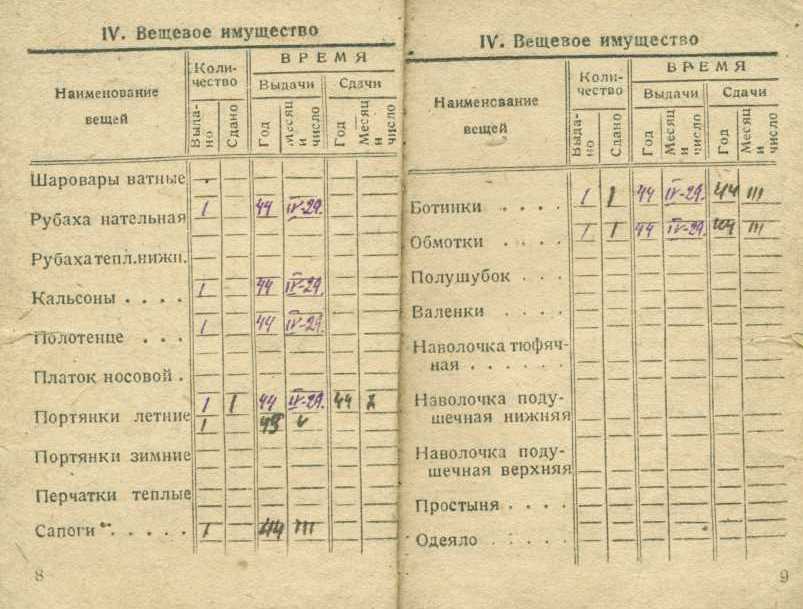 IV. Вещевое имущество
Наименование вещей
Коли-
чество
ВРЕМЯ
Выдачи
Сдачи
Выда-
но
Сдано
Год
Месяц и число
Год
Месяц и число
Шаровары ватные
Рубаха нательная 1 44 IV-29.
Рубаха тепл. нижн.
Кальсоны . . . . 1 44 IV-29.
Полотенце . . . 1 44 IV-29.
Платок носовой .
Портянки летние 1 1 44 IV-29. 44
1
Портянки зимние
Перчатки теплые
Сапоги . . . . . 1 44 III
8
IV. Вещевое имущество
Наименование вещей
Коли-
чество
ВРЕМЯ
Выдачи
Сдачи
Выда-
но
Сдано
Год
Месяц и число
Год
Месяц и число
Ботинки . . . . 1 1 44 IV-29. 44 III
Обмотки . . . . 1 1 44 IV-29. 44 III
Полушубок . . .
Валенки . . . .
Наволочка тюфяч-
ная . . . . . .
Наволочка поду-
шечная нижняя
Наволочка поду-
шечная верхняя
Простыня . . . .
Одеяло . . . . .
9